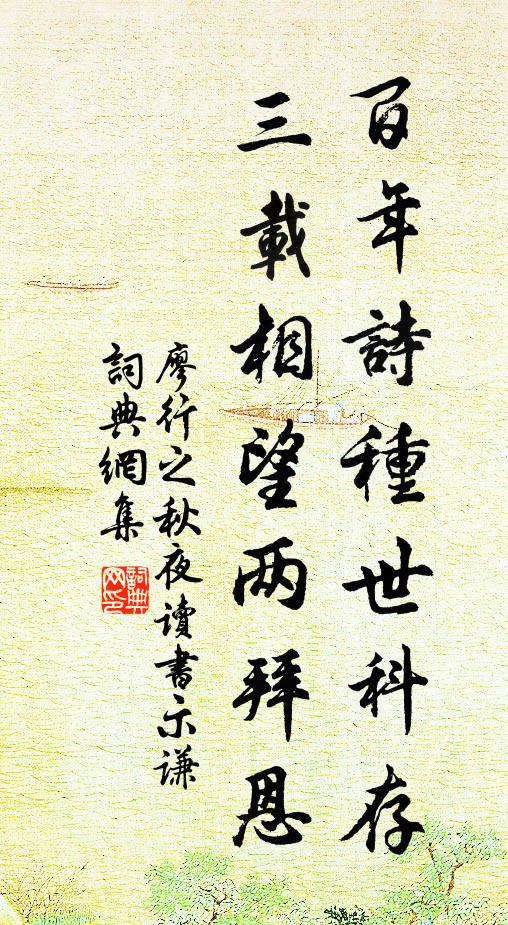 百年詩種世科存
三載相望两拜恩
廖行之秋夜讀書示谦
詞典網集
詞典
网印